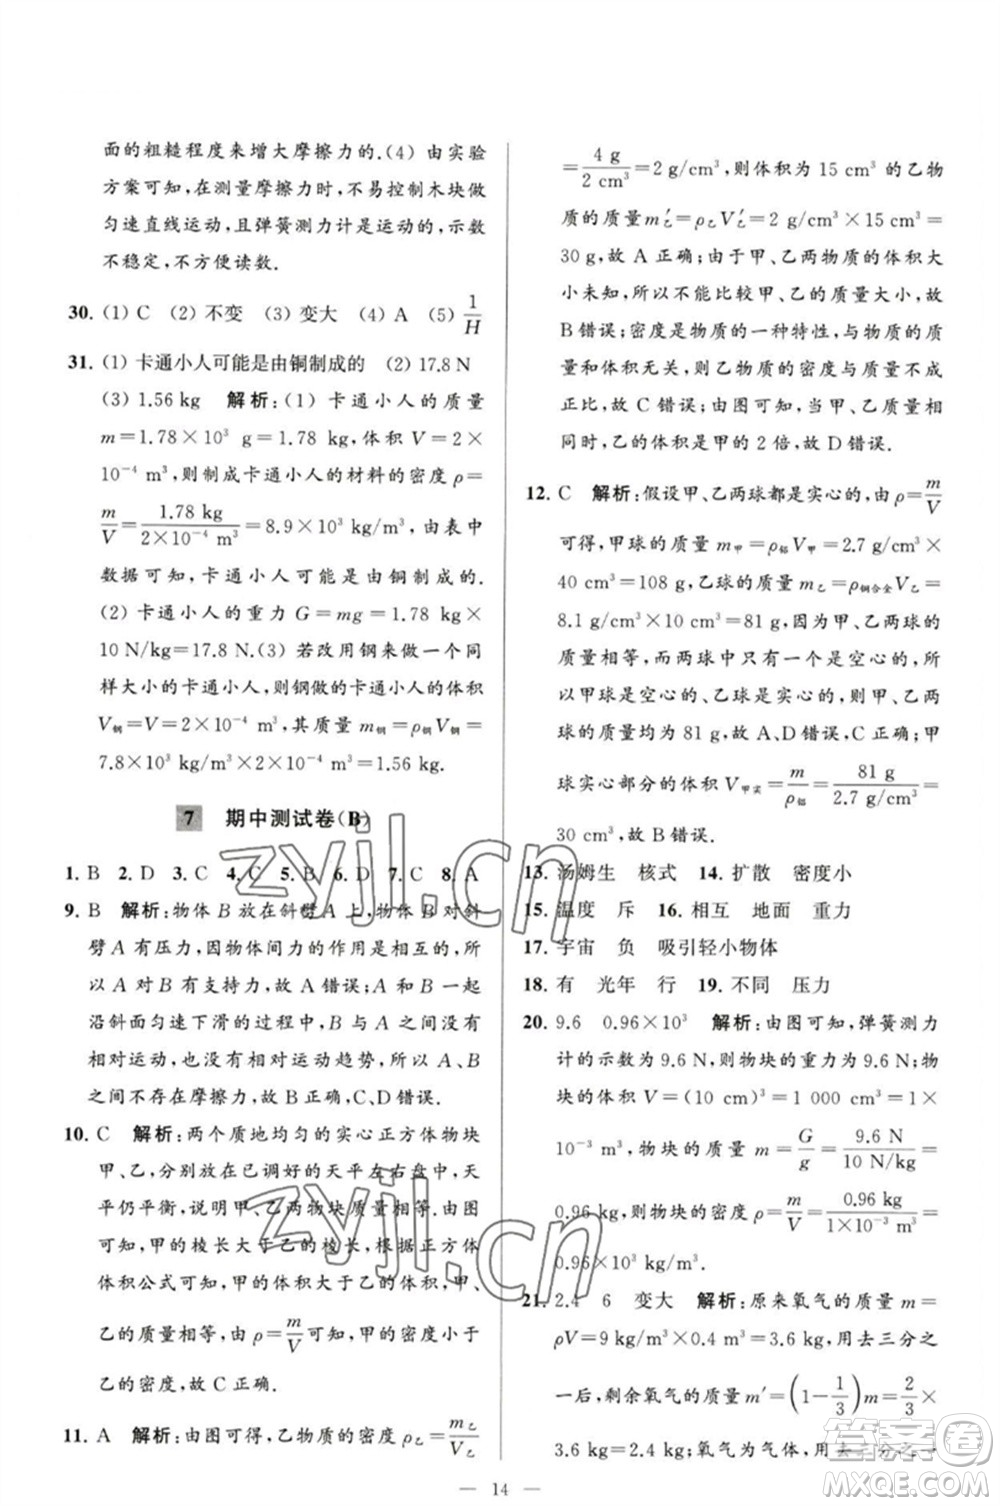 面的粗糙程度来增大摩擦力的.(4) 由实验
方案可知,在测量摩擦力时,不易控制木块做
匀速直线运动,且弹簧测力计是运动的,示数
不稳定,不方便读数.
30. (1) C (2) 不变 (3) 变大 (4) A (5) 1/H
31. (1) 卡通小人可能是由铜制成的 (2) 17.8 N
(3) 1.56 kg 解析:(1) 卡通小人的质量
m=1.78×10³ g=1.78 kg,体积 V=2×
10⁻⁴ m³,则制成卡通小人的材料的密度 ρ=
m/V=1.78 kg/2×10⁻⁴ m³=8.9×10³ kg/m³,由表中
数据可知,卡通小人可能是由铜制成的.
(2) 卡通小人的重力 G=mg=1.78 kg×
10 N/kg=17.8 N.(3) 若改用钢来做一个同
样大小的卡通小人,则钢做的卡通小人的体积
V钢=V=2×10⁻⁴ m³,其质量 m钢=ρ钢V钢=
7.8×10³ kg/m³×2×10⁻⁴ m³=1.56 kg.
7 期中测试卷(B)
1. B 2. D 3. C 4. C 5. B 6. D 7. C 8. A
9. B 解析:物体 B 放在斜劈 A 上,物体 B 对斜
劈 A 有压力,因物体间力的作用是相互的,所
以 A 对 B 有支持力,故 A 错误;当物体 B 一起
沿斜面匀速下滑的过程中,B 与 A 之间没有
相对运动,也没有相对运动趋势,所以 A、B
之间不存在摩擦力,故 B 正确,C、D 错误.
10. C 解析:两个质地均匀的实心正方体物块
甲、乙,分别放在已调好的天平左右盘中,天
平仍平衡,说明甲、乙两物块质量相等.由图
可知,甲的棱长大于乙的棱长,根据正方体
体积公式可知,甲的体积大于乙的体积,甲、
乙的质量相等,由 ρ=m/V 可知,甲的密度小于
乙的密度,故 C 正确.
11. A 解析:由图可得,乙物质的密度 ρ乙=m乙/V乙
=4 g/2 cm³=2 g/cm³,则体积为 15 cm³ 的乙物
质的质量 m′乙=ρ乙V′乙=2 g/cm³×15 cm³=
30 g,故 A 正确;由于甲、乙两物质的体积大
小未知,所以不能比较甲、乙的质量大小,故
B 错误;密度是物质的一种特性,与物质的质量
和体积无关,则乙物质的密度与质量不成
正比,故 C 错误;由图可知,当甲、乙质量相
同时,乙的体积是甲的 2 倍,故 D 错误.
12. C 解析:假设甲、乙两球都是实心的,由 ρ=m/V
可得,甲球的质量 m甲=ρ铝V甲=2.7 g/cm³×
40 cm³=108 g,乙球的质量 m乙=ρ铜合金V乙=
8.1 g/cm³×10 cm³=81 g,因为甲、乙两球的
质量相等,而两球中至少有一个是空心的,所
以甲球是空心的、乙球是实心的,则甲、乙两
球的质量均为 81 g,故 A、D 错误,C 正确;甲
球实心部分的体积 V甲实=m/ρ铝=81 g/2.7 g/cm³=
30 cm³,故 B 错误.
13. 汤姆生 核式 14. 扩散 密度小
15. 温度 斥 16. 相互 地面 重力
17. 宇宙 负 吸引轻小物体
18. 有 光年 行 19. 不同 压力
20. 9.6 0.96×10³ 解析:由图可知,弹簧测力
计的示数为 9.6 N,则物块的重力为 9.6 N;物
块的体积 V=(10 cm)³=1 000 cm³=1×
10⁻³ m³,物块的质量 m=G/g=9.6 N/10 N/kg=
0.96 kg,则物块的密度 ρ=m/V=0.96 kg/1×10⁻³ m³=
0.96×10³ kg/m³.
21. 2.4 6 变大 解析:原来氧气的质量 m=
ρV=9 kg/m³×0.4 m³=3.6 kg,用去三分之
一后,剩余氧气的质量 m′=(1−1/3)m=2/3×
3.6 kg=2.4 kg;氧气为气体,用去三分之一
— 14 —
zyjl.cn
zyjl.cn
答案圈
MXQE.COM